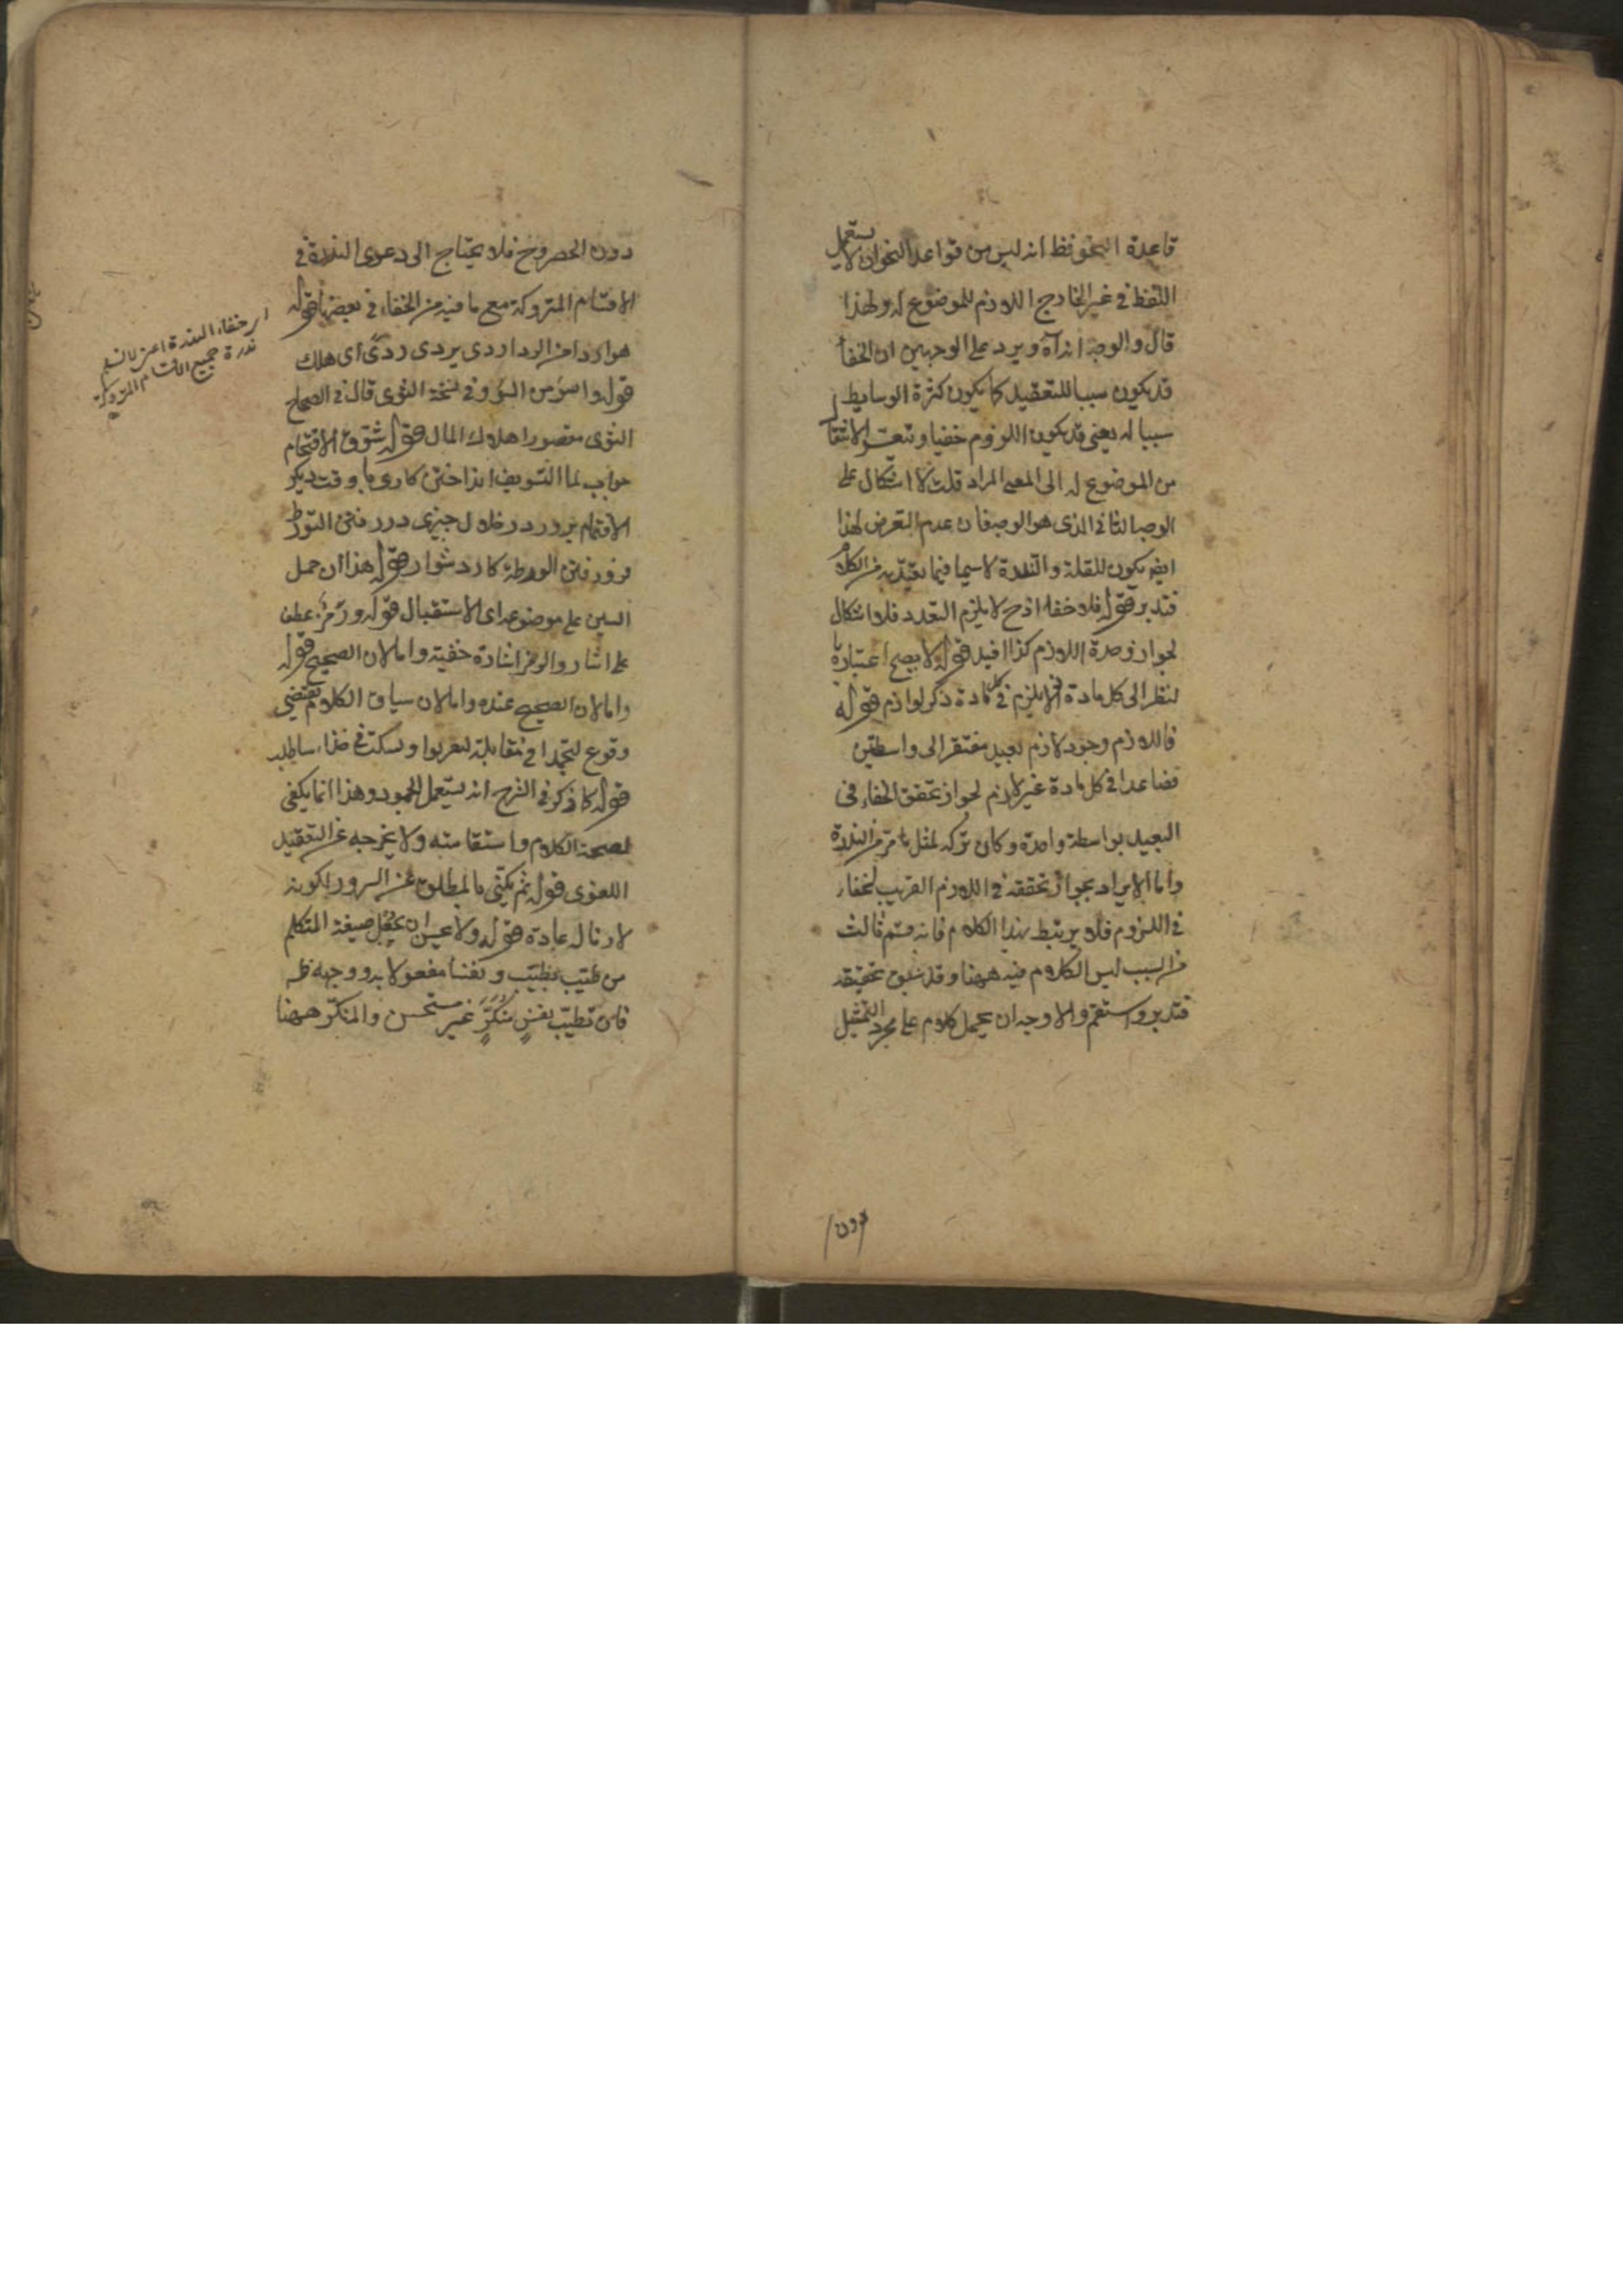 قاعدة النحو فظ انه ليس من قواعد النحو ان لا يستعمل
اللفظ في غير الخارج اللازم للموضوع له ولهذا
قال والوجه انه آه ويرد على الوجهين ان الخفأ
قد يكون سببا للتعقيد كما يكون كثرة الوسايط
سببا له يعني قد يكون اللزوم خفيا ويتعسر الانتقال
من الموضوع له الى المعنى المراد قلت لا اشكال على
الوجه الثاني الذي هو الوجه فان عدم التعرض لهذا
ايضا يكون للقلة والندرة لا سيما فيما يعتد به من الكلام
فتدبر قوله فلا خفاء اذ ح لا يلزم التعدد فلا اشكال
لجواز وحدة اللازم كذا افيد قوله لا يصح اعتباره با
لنظر الى كل مادة اذ لا يلزم في كل مادة ذكر لوازم قوله
فاللازم وجود لازم بعيد مفتقر الى واسطتين
فصاعدا في كل مادة غير لازم لجواز تحقق الخفاء في
البعيد بواسطة واحدة وكان تركه لمثل ما مر من الندرة
واما الايراد بجواز تحققه في اللازم القريب لخفاء
في اللزوم فلا يرتبط بهذا الكلام فانه قسم ثالث
من السبب ليس الكلام فيه ههنا وقد سبق تحقيقه
فتدبر واستقم والاوجه ان يحمل كلام على مجرد التمثيل
دون
دون الحصر وح فلا يحتاج الى دعوى الندرة في
الاقسام المتروكة مع ما فيه من الخفاء في بعضها قوله
هوا ردا من الردا ردى يردى ردى اى هلك
قوله واسوء من السوء وفي نسخة التوى قال في الصحاح
التوى مقصورا هلاك المال قوله شقوق الاقتحام
جواب لما التسويف انداختن كارى با وقت ديكر
الاقتحام بزور در خلال جيزى در رفتن التورط
فرو رفتن الورطة كار دشوار قوله هذا ان حمل
السين على موضوعه اى الاستقبال قوله ورمز عطف
على اشار والرمز اشارة خفية واما لان الصحيح قوله
واما لان الصحيح عنده واما لان سياق الكلام يقتضى
وقوع لتجمدا في مقابلة لتقربوا وتسكب في حذاء ساطلب
قوله كما ذكر في الشرح انه يستعمل للجمود وهذا انما يكفي
لصحة الكلام واستقامته ولا يخرجه عن التعقيد
المعنوى قوله ثم يكنى بالمطلوق عن السرور لكونه
لازما له عادة قوله ولا عيس ان يجعل صيغة المتكلم
من طيب يطيب ونفسا مفعولا به ووجهه ظ
فان تطيب نفس منكر غير مستحسن والمنكر ههنا
خفاء الندرة
ندرة جميع الاقسام المتروكة